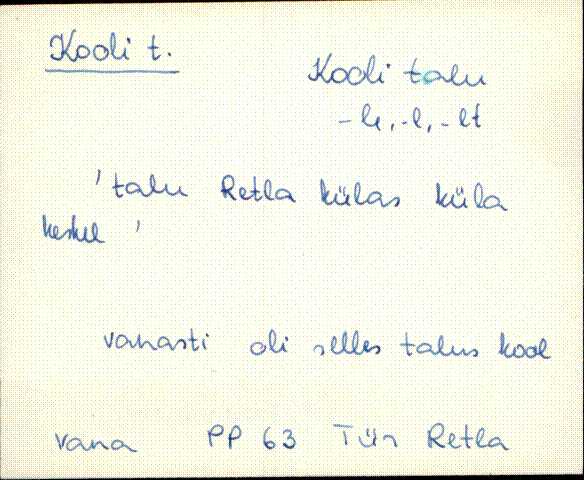 Kooli t.
Kooli talu
-le, -l, -lt
'talu Retla külas küla
keskel'
vanasti oli selles talus kool
vana PP 63 Tür Retla